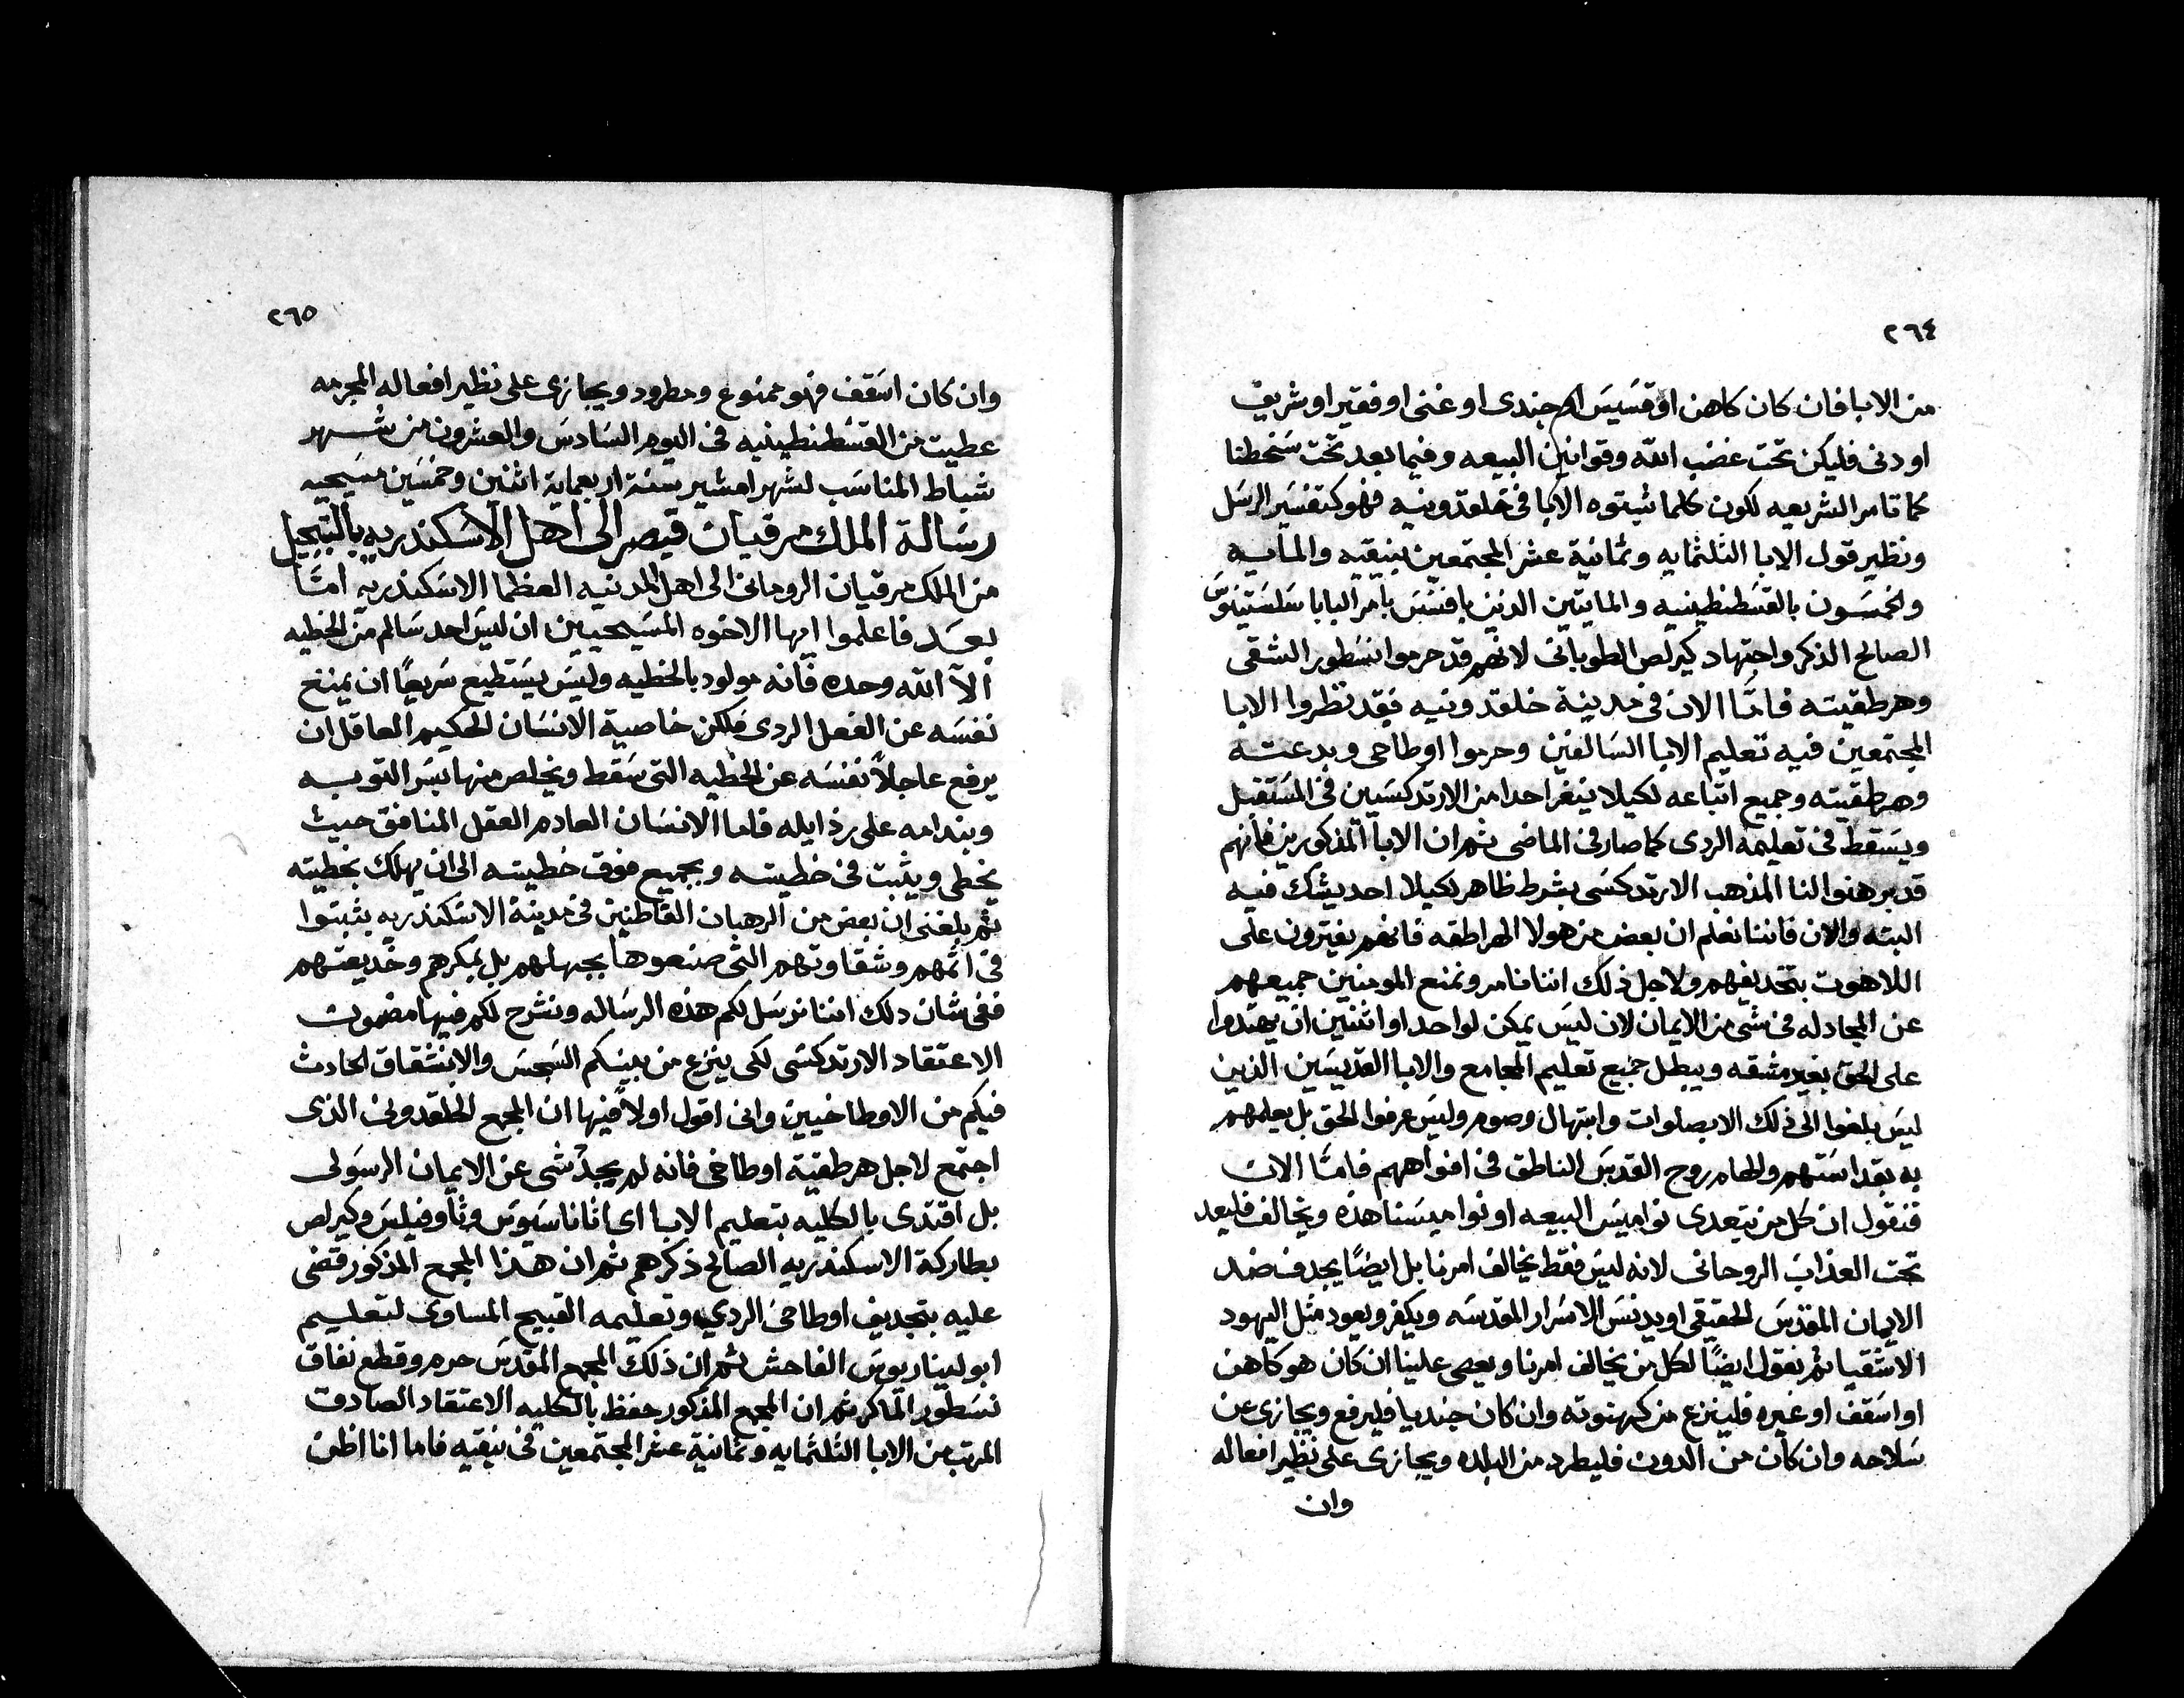 ٢٦٤
من الابا فان كان كاهن او قسيس او جندى او غنى او فقير او شريف
او دنى فليكن تحت غضب الله وقوانين البيعه وفيما بعد تحت سخطنا
كما تامر الشريعه لكون كلما ثبتوه الابا فى خلقدونيه فهو كتفسير الرسل
ونظير قول الابا الثلثمايه وثمانية عشر المجتمعين بنيقيه والمايه
والخمسون بالقسطنطينيه والمايتين الذين بافسس بامر البابا سلستينوس
الصالح الذكر واجتهاد كيرلص الطوبانى لانهم قد حرموا نسطور الشقى
وهرطقيته فامّا الان فى مدينة خلقدونيه فقد نظروا الابا
المجتمعين فيه تعليم الابا السالفين وحرموا اوطاخى وبدعته
وهرطقيته وجميع اتباعه لكيلا ينغر احدا من الارتدكسيين فى المستقبل
ويسقط فى تعليمه الردى كما صار فى الماضى ثم ان الابا المذكورين فانهم
قد برهنوا لنا المذهب الارتدكسى بشرط ظاهر لكيلا احد يشك فيه
البته والان فاننا نعلم ان بعض من هولا الهراطقه فانهم يفترون على
اللاهوت بتجديفهم ولاجل ذلك اننا نامر ونمنع المومنين جميعهم
عن المجادله فى شى من الايمان لان ليس يمكن لواحد او اثنين ان يهتدوا
على الحق بغير مشقه ويبطل جميع تعليم المجامع والابا القديسين الذين
ليس بلغوا الى ذلك الا بصلوات وابتهال وصوم وليس عرفوا الحق بل يعلمهم
به بقداستهم والهام روح القدس الناطق فى افواههم فامّا الان
فنقول ان كل من يتعدى نواميس البيعه او نواميسنا هذه ويخالف فليعد
تحت العذاب الروحانى لانه ليس فقط يخالف امرنا بل ايضًا يجدف ضد
الايمان المقدس الحقيقى او يدنس الاسرار المقدسه ويكفر ويعود مثل اليهود
الاشقيا ثم نقول ايضًا لكل من يخالف امرنا ويعصى علينا ان كان هو كاهن
او اسقف او غيره فلينزع من كهنوته وان كان جنديا فليرفع ويجازى عن
سلاحه وان كان من الدون فليطرد من البلده ويجازى على نظير افعاله
وان
٢٦٥
وان كان اسقف فهو ممنوع ومطرود ويجازى على نظير افعاله المجرمه
عطيت من القسطنطينيه فى اليوم السادس والعشرون من شهر
شباط المناسب لشهر امشير سنة اربعماية اثنين وخمسين مسيحيه
رسالة الملك مرقيان قيصر الى اهل الاسكندريه بالتبجيل
من الملك مرقيان الرومانى الى اهل المدنيه العظما الاسكندريه امّا
بعد فاعلموا ايها الاخوه المسيحيين ان ليس احد سالم من الخطيه
الآ الله وحده فانه مولود بالخطيه وليس يستطيع سريعًا ان يمنع
نفسه عن الفعل الردى فلكن خاصية الانسان الحكيم العاقل ان
يرفع عاجلاً نفسه عن الخطيه التى سقط ويخلص منها بسر التوبه
وبندامه على رذايله فاما الانسان العادم العقل المنافق حيث
يخطى ويثبت فى خطيته وبجميع فوق خطيته الى ان يهلك بخطيته
ثم بلغنى ان بعض من الرهبان القاطنين فى مدينة الاسكندريه يثبتوا
فى اثمهم وشقاوتهم التى صنعوها بجهلهم بل بمكرهم وخديعتهم
ففى شان دلك اننا نرسل لكم هذه الرساله ونشرح لكم فيها مضمون
الاعتقاد الارتدكسى لكى ينزع من بينكم السجس والانشقاق الحادث
فيكم من الاوطاخيين وانى اقول اولاً فيها ان المجمع الخلقدونى الذى
اجتمع لاجل هرطقية اوطاخى فانه لم يجدّ شى عن الايمان الرسولى
بل اقتدى بالكليه بتعليم الابا اى اثاناسيوس وثاوفيلس وكيرلص
بطاركة الاسكندريه الصالح ذكرهم ثم ان هذا المجمع المذكور قضى
عليه بتجديف اوطاخى الردي وتعليمه القبيح المساوى لتعليم
ابوليناريوس الفاحش ثم ان ذلك المجمع المقدس حرم وقطع نفاق
نسطور الماكر ثم ان المجمع المذكور حفظ بالكليه الاعتقاد الصادق
المرتب من الابا الثلثمايه وثمانية عشر المجتمعين فى نيقيه فاما انا اظن